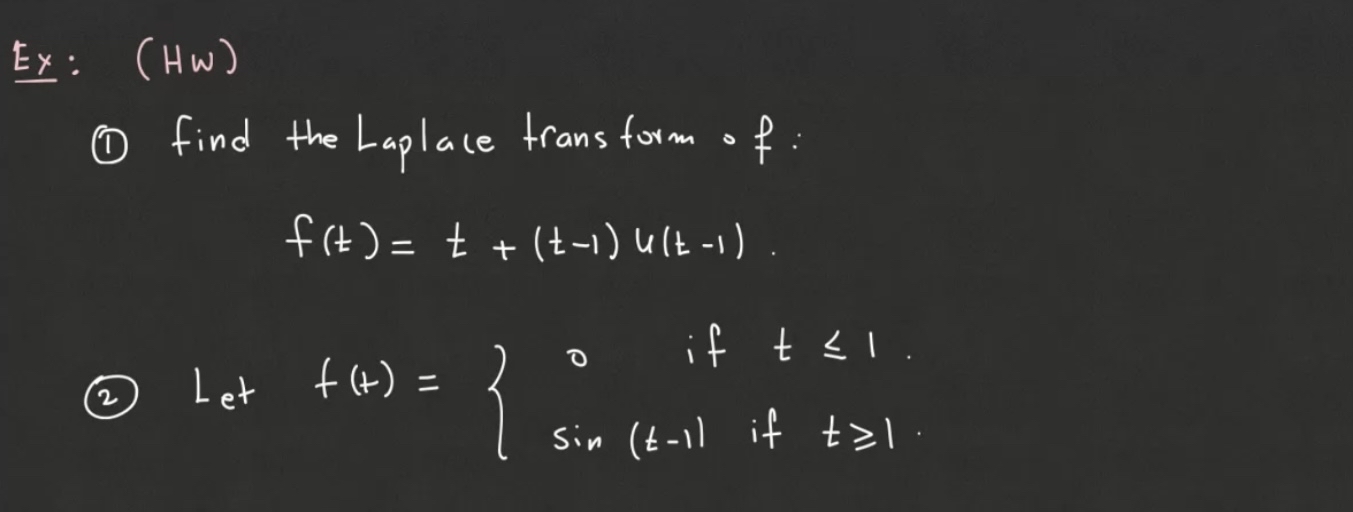 Ex: (HW)
① find the Laplace transform of:
f(t) = t + (t-1) u(t-1).
② Let f(t) = { 0 if t ≤ 1.
sin (t-1) if t ≥ 1.